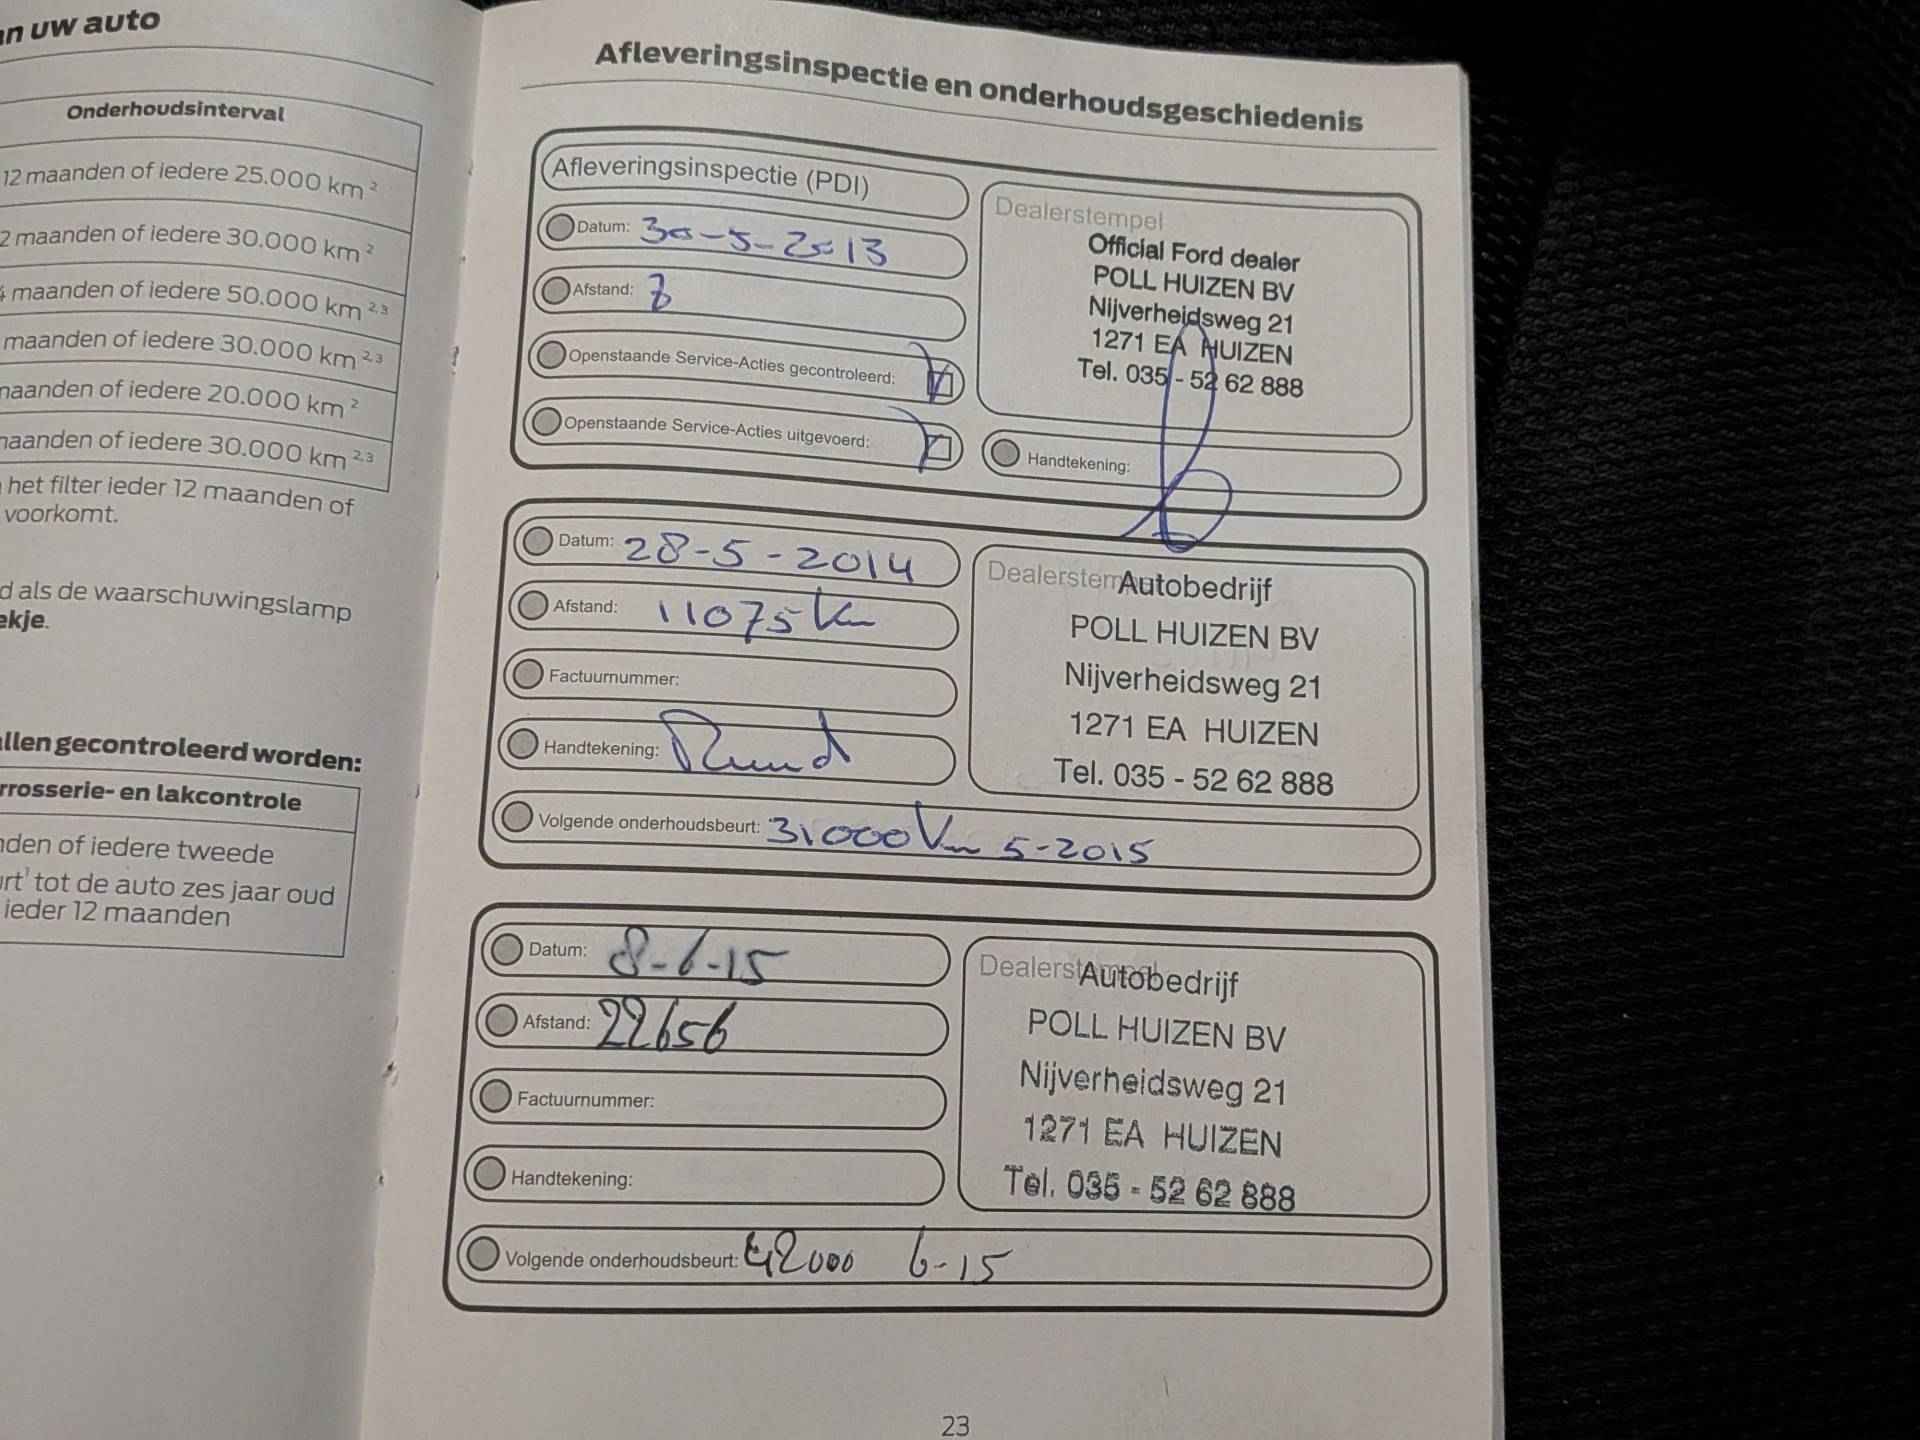 an uw auto
Onderhoudsinterval
12 maanden of iedere 25.000 km 2
2 maanden of iedere 30.000 km 2
4 maanden of iedere 50.000 km 2,3
maanden of iedere 30.000 km 2,3
maanden of iedere 20.000 km 2
maanden of iedere 30.000 km 2,3
het filter ieder 12 maanden of
voorkomt.
d als de waarschuwingslamp
ekje.
allen gecontroleerd worden:
rrosserie- en lakcontrole
nden of iedere tweede
urt1 tot de auto zes jaar oud
ieder 12 maanden
Afleveringsinspectie en onderhoudsgeschiedenis
Afleveringsinspectie (PDI)
Datum: 30-5-2013
Afstand:
Openstaande Service-Acties gecontroleerd:
Openstaande Service-Acties uitgevoerd:
Dealerstempel
Official Ford dealer
POLL HUIZEN BV
Nijverheidsweg 21
1271 EA HUIZEN
Tel. 035 - 52 62 888
Handtekening:
Datum: 28-5-2014
Afstand: 11075 km
Factuurnummer:
Handtekening:
Dealerstem
Autobedrijf
POLL HUIZEN BV
Nijverheidsweg 21
1271 EA HUIZEN
Tel. 035 - 52 62 888
Volgende onderhoudsbeurt: 31000 km 5-2015
Datum: 8-6-15
Afstand: 22656
Factuurnummer:
Handtekening:
Dealerst
Autobedrijf
POLL HUIZEN BV
Nijverheidsweg 21
1271 EA HUIZEN
Tel. 035 - 52 62 888
Volgende onderhoudsbeurt: 42000 6-15
23